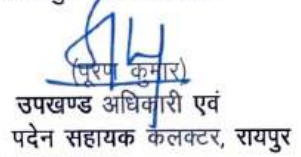 (पूरण कुमार)
उपखण्ड अधिकारी एवं
पदेन सहायक कलक्टर, रायपुर